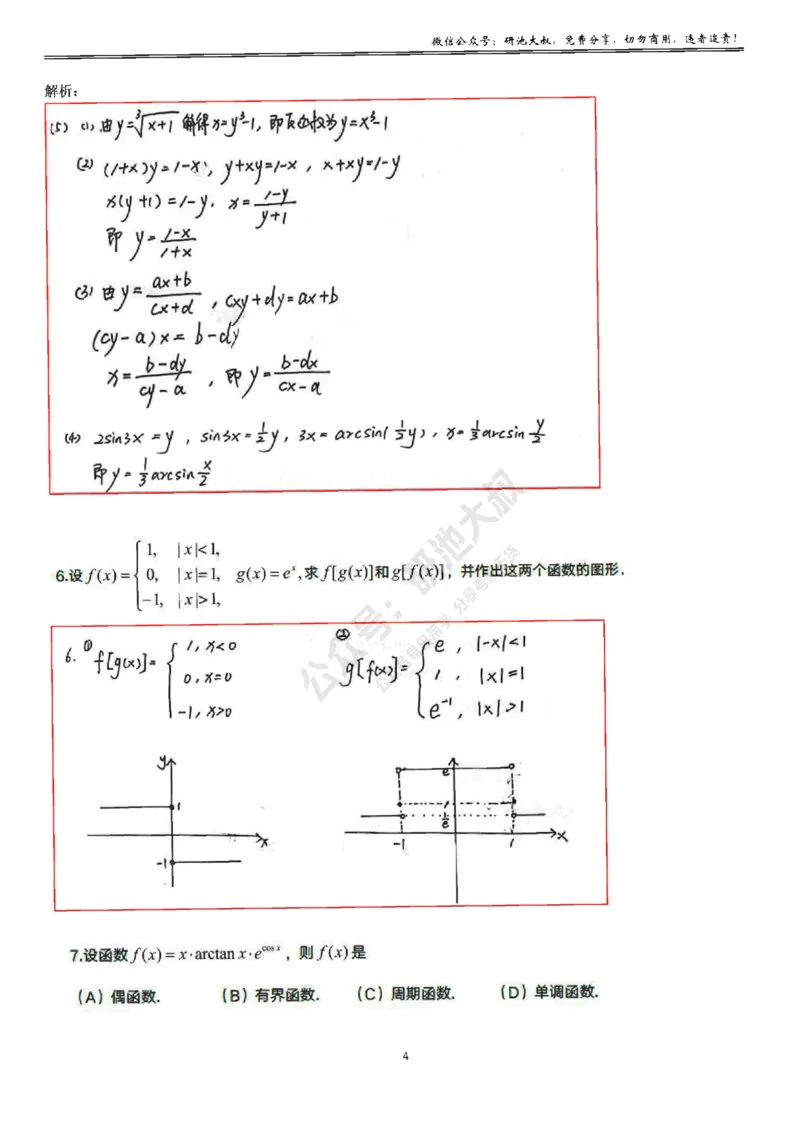 微信公众号：研池大叔，免费分享，切勿商用，违者追责！
解析：
(5) (1) 由y=∛(x+1) 解得x=y³-1，即反函数为y=x³-1
(2) (1+x)y=1-x，y+xy=1-x，x+xy=1-y
x(y+1)=1-y．x=(1-y)/(y+1)
即 y=(1-x)/(1+x)
(3) 由y=(ax+b)/(cx+d)，cxy+dy=ax+b
(cy-a)x=b-dy
x=(b-dy)/(cy-a)，即y=(b-dx)/(cx-a)
(4) 2sin3x=y，sin3x=1/2y，3x=arcsin(1/2y)，x=1/3arcsin y/2
即y=1/3arcsin x/2
6.设f(x)={1, |x|<1, 0, |x|=1, -1, |x|>1, g(x)=eˣ,求f[g(x)]和g[f(x)]，并作出这两个函数的图形．
6. ① f[g(x)]={1，x<0
0，x=0
-1，x>0
② g[f(x)]={e，|-x|<1
1，|x|=1
e⁻¹，|x|>1
y
1
x
-1
e
1
1/e
-1
1
x
7.设函数f(x)=x·arctan x·e^cos x，则f(x)是
（A）偶函数. （B）有界函数. （C）周期函数. （D）单调函数.
公众号：研池大叔
4